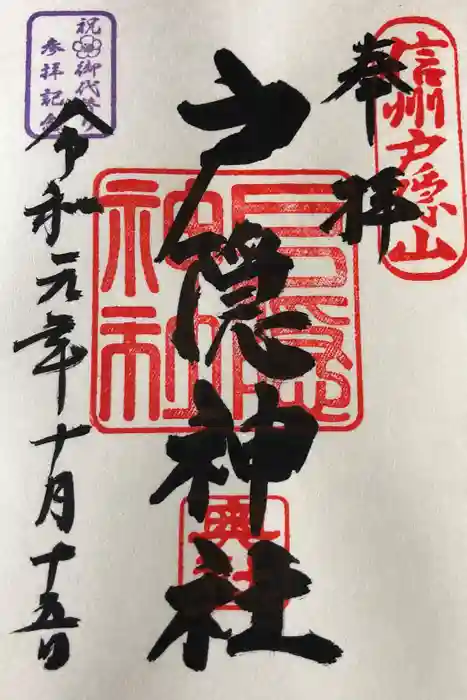 信州戸隠山
奉拝
戸隠神社
戸隠
神社
奥社
令和元年十月十五日
祝御代替り
参拝記念